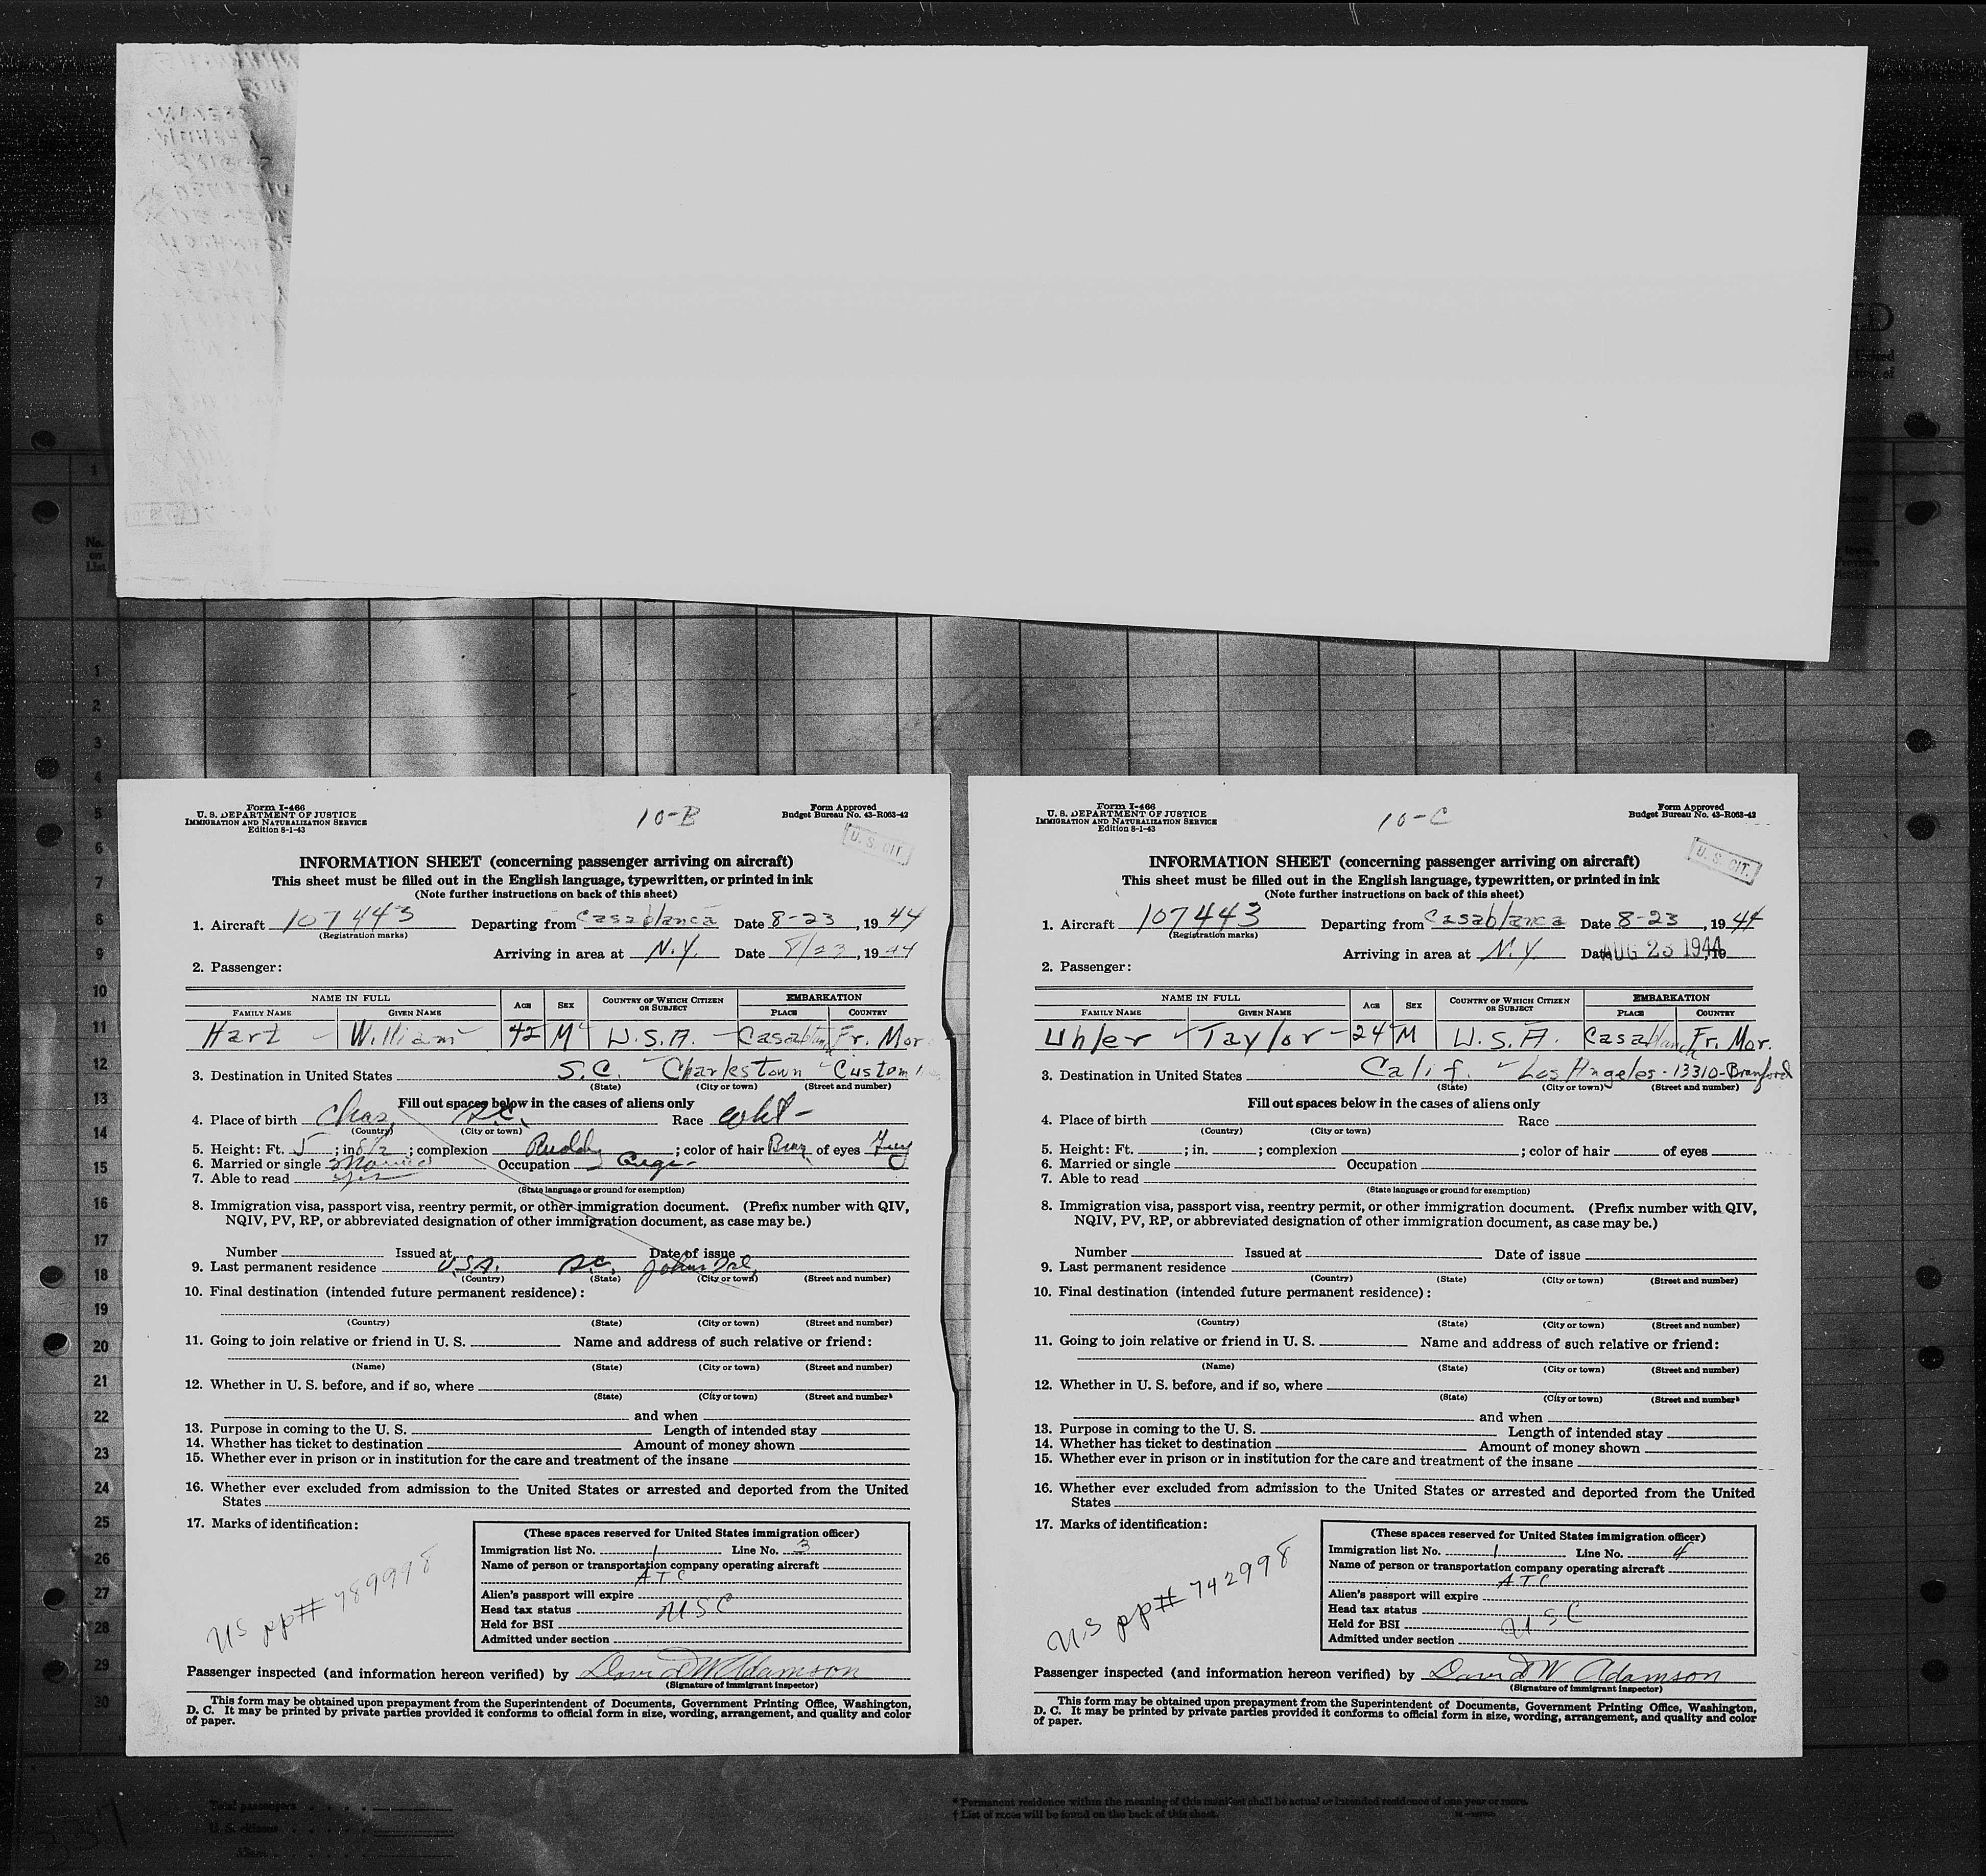 No.
on
List
1
1
2
3
4
5
6
7
8
9
10
11
12
13
14
15
16
17
18
19
20
21
22
23
24
25
26
27
28
29
30
Form I-466
U. S. DEPARTMENT OF JUSTICE
IMMIGRATION AND NATURALIZATION SERVICE
Edition 8-1-43
10-B
Form Approved
Budget Bureau No. 43-R063-42
U. S. CIT.
INFORMATION SHEET (concerning passenger arriving on aircraft)
This sheet must be filled out in the English language, typewritten, or printed in ink
(Note further instructions on back of this sheet)
1. Aircraft 107443 Departing from Casablanca Date 8-23, 1944
(Registration marks)
Arriving in area at N.Y. Date 8/23, 1944
2. Passenger:
NAME IN FULL AGE SEX COUNTRY OF WHICH CITIZEN OR SUBJECT EMBARKATION
FAMILY NAME GIVEN NAME PLACE COUNTRY
Hart William 42 M U.S.A. Casablanca Fr. Mor
3. Destination in United States S.C. Charlestown Custom
(State) (City or town) (Street and number)
Fill out spaces below in the cases of aliens only
4. Place of birth Chas, S.C. Race wht-
(Country) (City or town)
5. Height: Ft. 5; in 8 1/2; complexion Ruddy; color of hair of eyes
6. Married or single Married Occupation
7. Able to read yes
(State language or ground for exemption)
8. Immigration visa, passport visa, reentry permit, or other immigration document. (Prefix number with QIV,
NQIV, PV, RP, or abbreviated designation of other immigration document, as case may be.)
Number Issued at Date of issue
9. Last permanent residence U.S.A. S.C.
(Country) (State) (City or town) (Street and number)
10. Final destination (intended future permanent residence):
(Country) (State) (City or town) (Street and number)
11. Going to join relative or friend in U. S. Name and address of such relative or friend:
(Name) (State) (City or town) (Street and number)
12. Whether in U. S. before, and if so, where
(State) (City or town) (Street and number)
and when
13. Purpose in coming to the U. S. Length of intended stay
14. Whether has ticket to destination Amount of money shown
15. Whether ever in prison or in institution for the care and treatment of the insane
16. Whether ever excluded from admission to the United States or arrested and deported from the United
States
17. Marks of identification:
US pp# 789998
(These spaces reserved for United States immigration officer)
Immigration list No. 1 Line No. 3
Name of person or transportation company operating aircraft
ATC
Alien's passport will expire
Head tax status USC
Held for BSI
Admitted under section
Passenger inspected (and information hereon verified) by David W Adamson
(Signature of immigrant inspector)
This form may be obtained upon prepayment from the Superintendent of Documents, Government Printing Office, Washington,
D. C. It may be printed by private parties provided it conforms to official form in size, wording, arrangement, and quality and color
of paper.
Form I-466
U. S. DEPARTMENT OF JUSTICE
IMMIGRATION AND NATURALIZATION SERVICE
Edition 8-1-43
10-C
Form Approved
Budget Bureau No. 43-R063-42
U. S. CIT.
INFORMATION SHEET (concerning passenger arriving on aircraft)
This sheet must be filled out in the English language, typewritten, or printed in ink
(Note further instructions on back of this sheet)
1. Aircraft 107443 Departing from Casablanca Date 8-23, 1944
(Registration marks)
Arriving in area at N.Y. Date AUG 23 1944, 19
2. Passenger:
NAME IN FULL AGE SEX COUNTRY OF WHICH CITIZEN OR SUBJECT EMBARKATION
FAMILY NAME GIVEN NAME PLACE COUNTRY
Uhler Taylor 24 M U.S.A. Casablanca Fr. Mor.
3. Destination in United States Calif. Los Angeles - 13310-Branford
(State) (City or town) (Street and number)
Fill out spaces below in the cases of aliens only
4. Place of birth Race
(Country) (City or town)
5. Height: Ft. ; in. ; complexion ; color of hair of eyes
6. Married or single Occupation
7. Able to read
(State language or ground for exemption)
8. Immigration visa, passport visa, reentry permit, or other immigration document. (Prefix number with QIV,
NQIV, PV, RP, or abbreviated designation of other immigration document, as case may be.)
Number Issued at Date of issue
9. Last permanent residence
(Country) (State) (City or town) (Street and number)
10. Final destination (intended future permanent residence):
(Country) (State) (City or town) (Street and number)
11. Going to join relative or friend in U. S. Name and address of such relative or friend:
(Name) (State) (City or town) (Street and number)
12. Whether in U. S. before, and if so, where
(State) (City or town) (Street and number)
and when
13. Purpose in coming to the U. S. Length of intended stay
14. Whether has ticket to destination Amount of money shown
15. Whether ever in prison or in institution for the care and treatment of the insane
16. Whether ever excluded from admission to the United States or arrested and deported from the United
States
17. Marks of identification:
U.S pp# 742998
(These spaces reserved for United States immigration officer)
Immigration list No. 1 Line No. 4
Name of person or transportation company operating aircraft
ATC
Alien's passport will expire
Head tax status USC
Held for BSI
Admitted under section
Passenger inspected (and information hereon verified) by David W Adamson
(Signature of immigrant inspector)
This form may be obtained upon prepayment from the Superintendent of Documents, Government Printing Office, Washington,
D. C. It may be printed by private parties provided it conforms to official form in size, wording, arrangement, and quality and color
of paper.
Total passengers
U. S. citizens
Aliens
* Permanent residence within the meaning of this manifest shall be actual or intended residence of one year or more.
† List of races will be found on the back of this sheet.